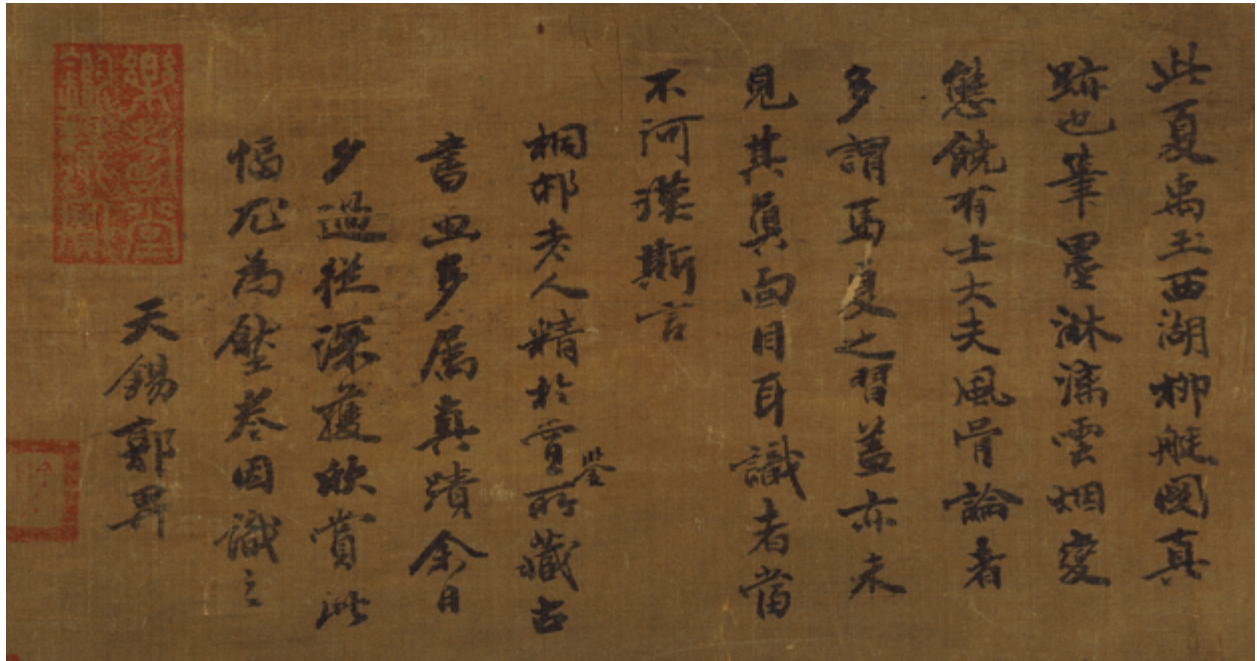 此夏禹玉西湖柳艇圖真
跡也筆墨淋漓雲烟變
態饒有士大夫風骨論者
多謂馬夏之習蓋亦未
見其眞面目耳識者當
不河漢斯言
桐邨老人精於賞鑒所藏古
書画多属真蹟余日
夕過從深獲欣賞此
幅尤為壓卷因識之
天錫郭畀
樂壽堂
鑑藏寶